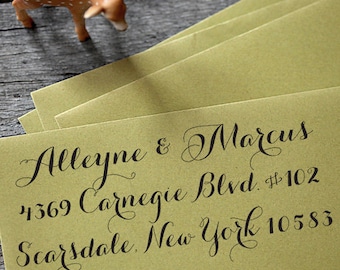 Alleyne & Marcus
4369 Carnegie Blvd. #102
Scarsdale, New York 10583